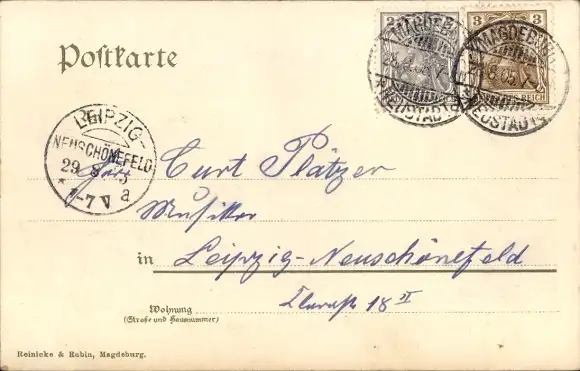 Postkarte
2
3
MAGDEBURG
NEUSTADT
MAGDEBURG
NEUSTADT
REICH
LEIPZIG-
NEUSCHÖNEFELD
29 8 05
* 1-7 V a
Herr Curt Plätzer
Musiker
in Leipzig-Neuschönefeld
18 II
Wohnung
(Straße und Hausnummer)
Reinicke & Rubin, Magdeburg.